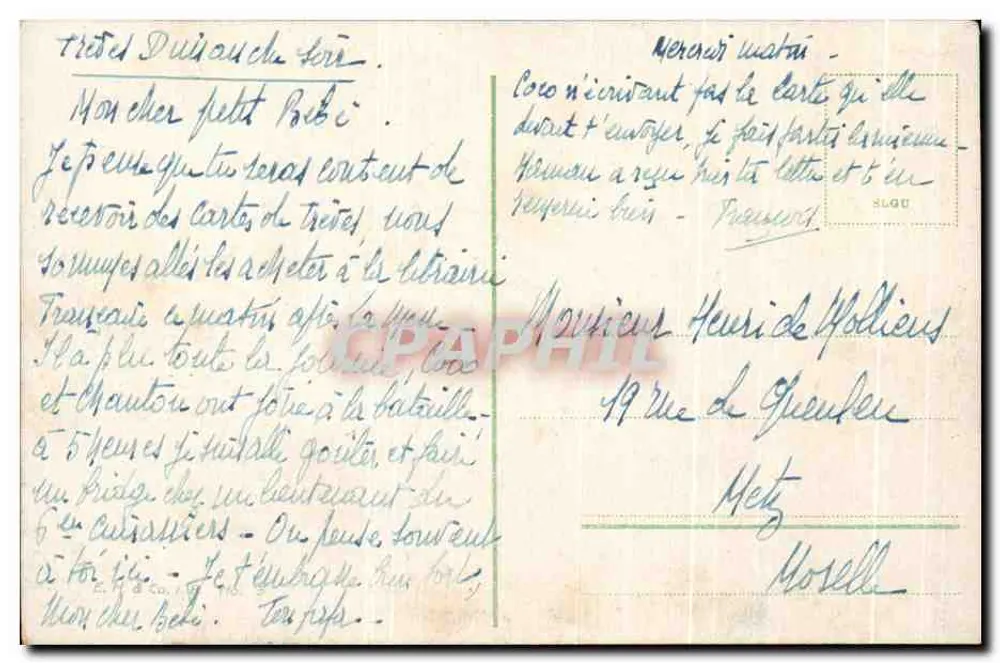 Trèves Dimanche soir.
Mon cher petit Bébé.
Je pense que tu seras content de
recevoir des cartes de Trèves, nous
sommes allés les acheter à la librairie
Française ce matin après la messe
Il a plu toute la journée, Coco
et Chanton ont joué à la bataille -
à 5 heures je suis allé goûter et faire
un bridge chez un lieutenant du
6en cuirassiers - On pense souvent
à toi ici - Je t'embrasse bien fort,
Mon cher Bébé. Ton papa -
Mercredi matin -
Coco n'écrivant pas la carte qu'elle
devait t'envoyer, je fais partir la mienne -
Maman a reçu hier ta lettre et t'en
remercie bien - François
SLGU
Monsieur Henri de Wolliens
19 rue de Queuleu
Metz
Moselle
CPAPHIL